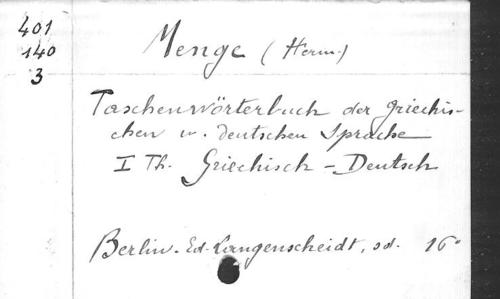 401
140
3
Menge (Herm.)
Taschenwörterbuch der griechis-
chen u. deutschen Sprache
I Th. Griechisch - Deutsch
Berlin. Ed. Langenscheidt, sd. 16°